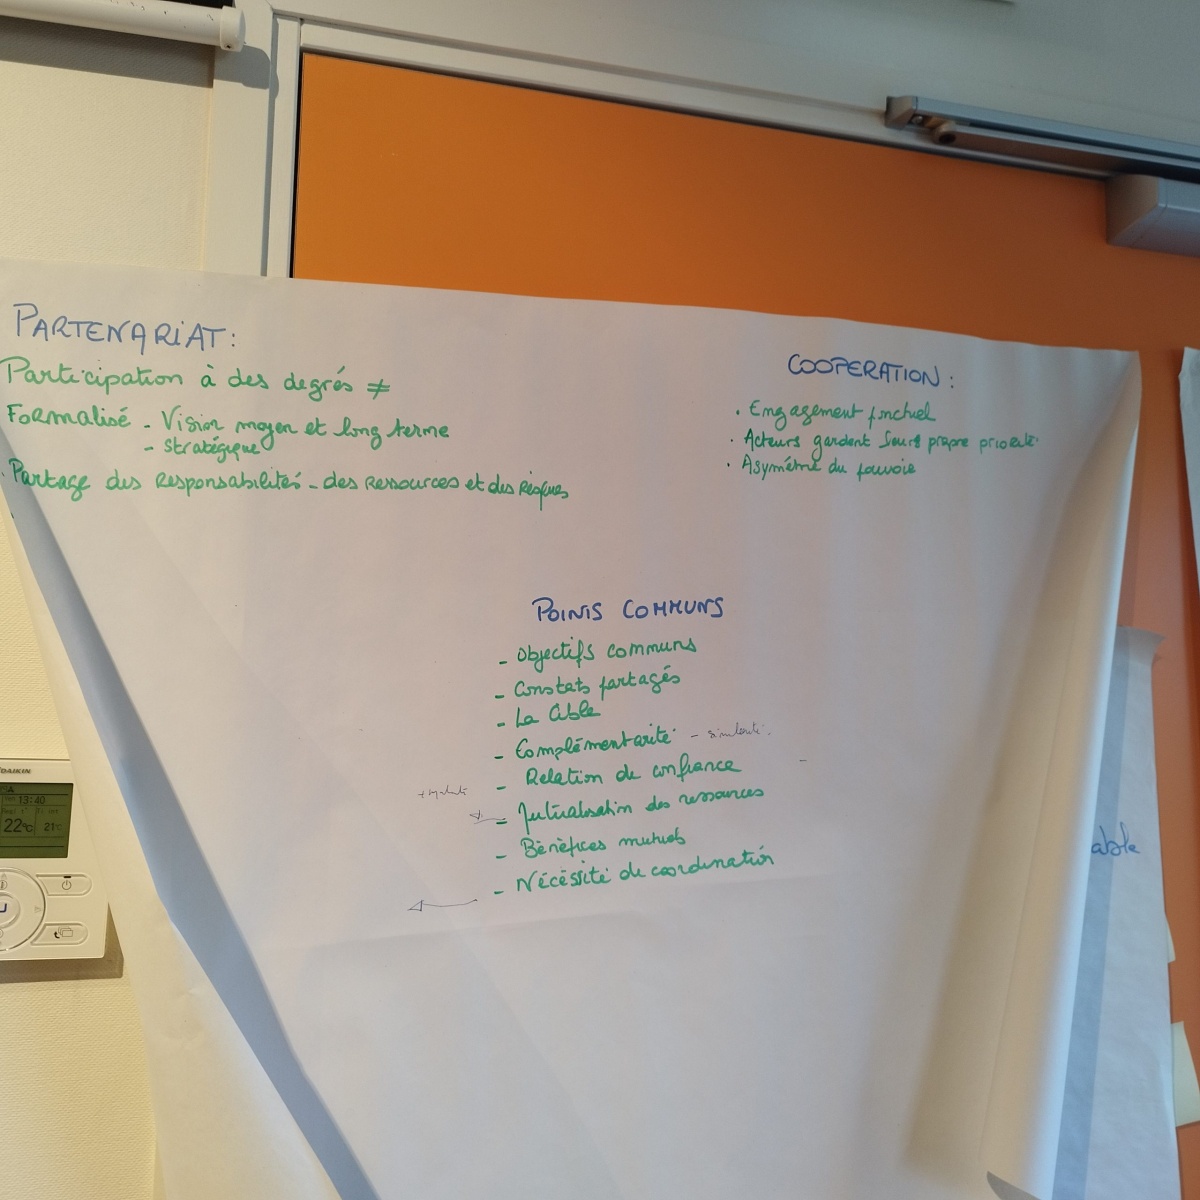 PARTENARIAT:
Participation à des degrés ≠
Formalisé - Vision moyen et long terme
- Stratégique
. Partage des Responsabilités - des Ressources et des Risques
COOPERATION :
. Engagement ponctuel
. Acteurs gardent leurs propre priorité
. Asymétrie du pouvoir
POINTS COMMUNS
- Objectifs communs
- Constats partagés
- La Cible
- Complémentarité - similarité.
- Relation de confiance
- Mutualisation des ressources
- Bénéfices mutuels
- Nécéssité de coordination
able
DAIKIN
13:40
22°C 21°C